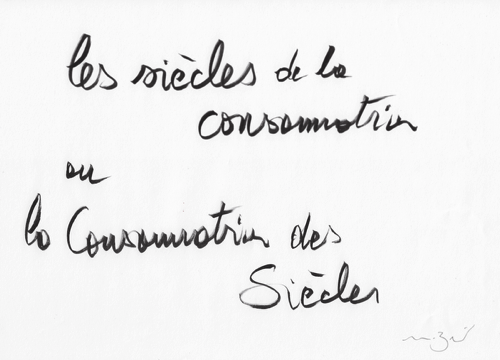 les siècles de la
consommation
ou
la Consommation des
Siècles